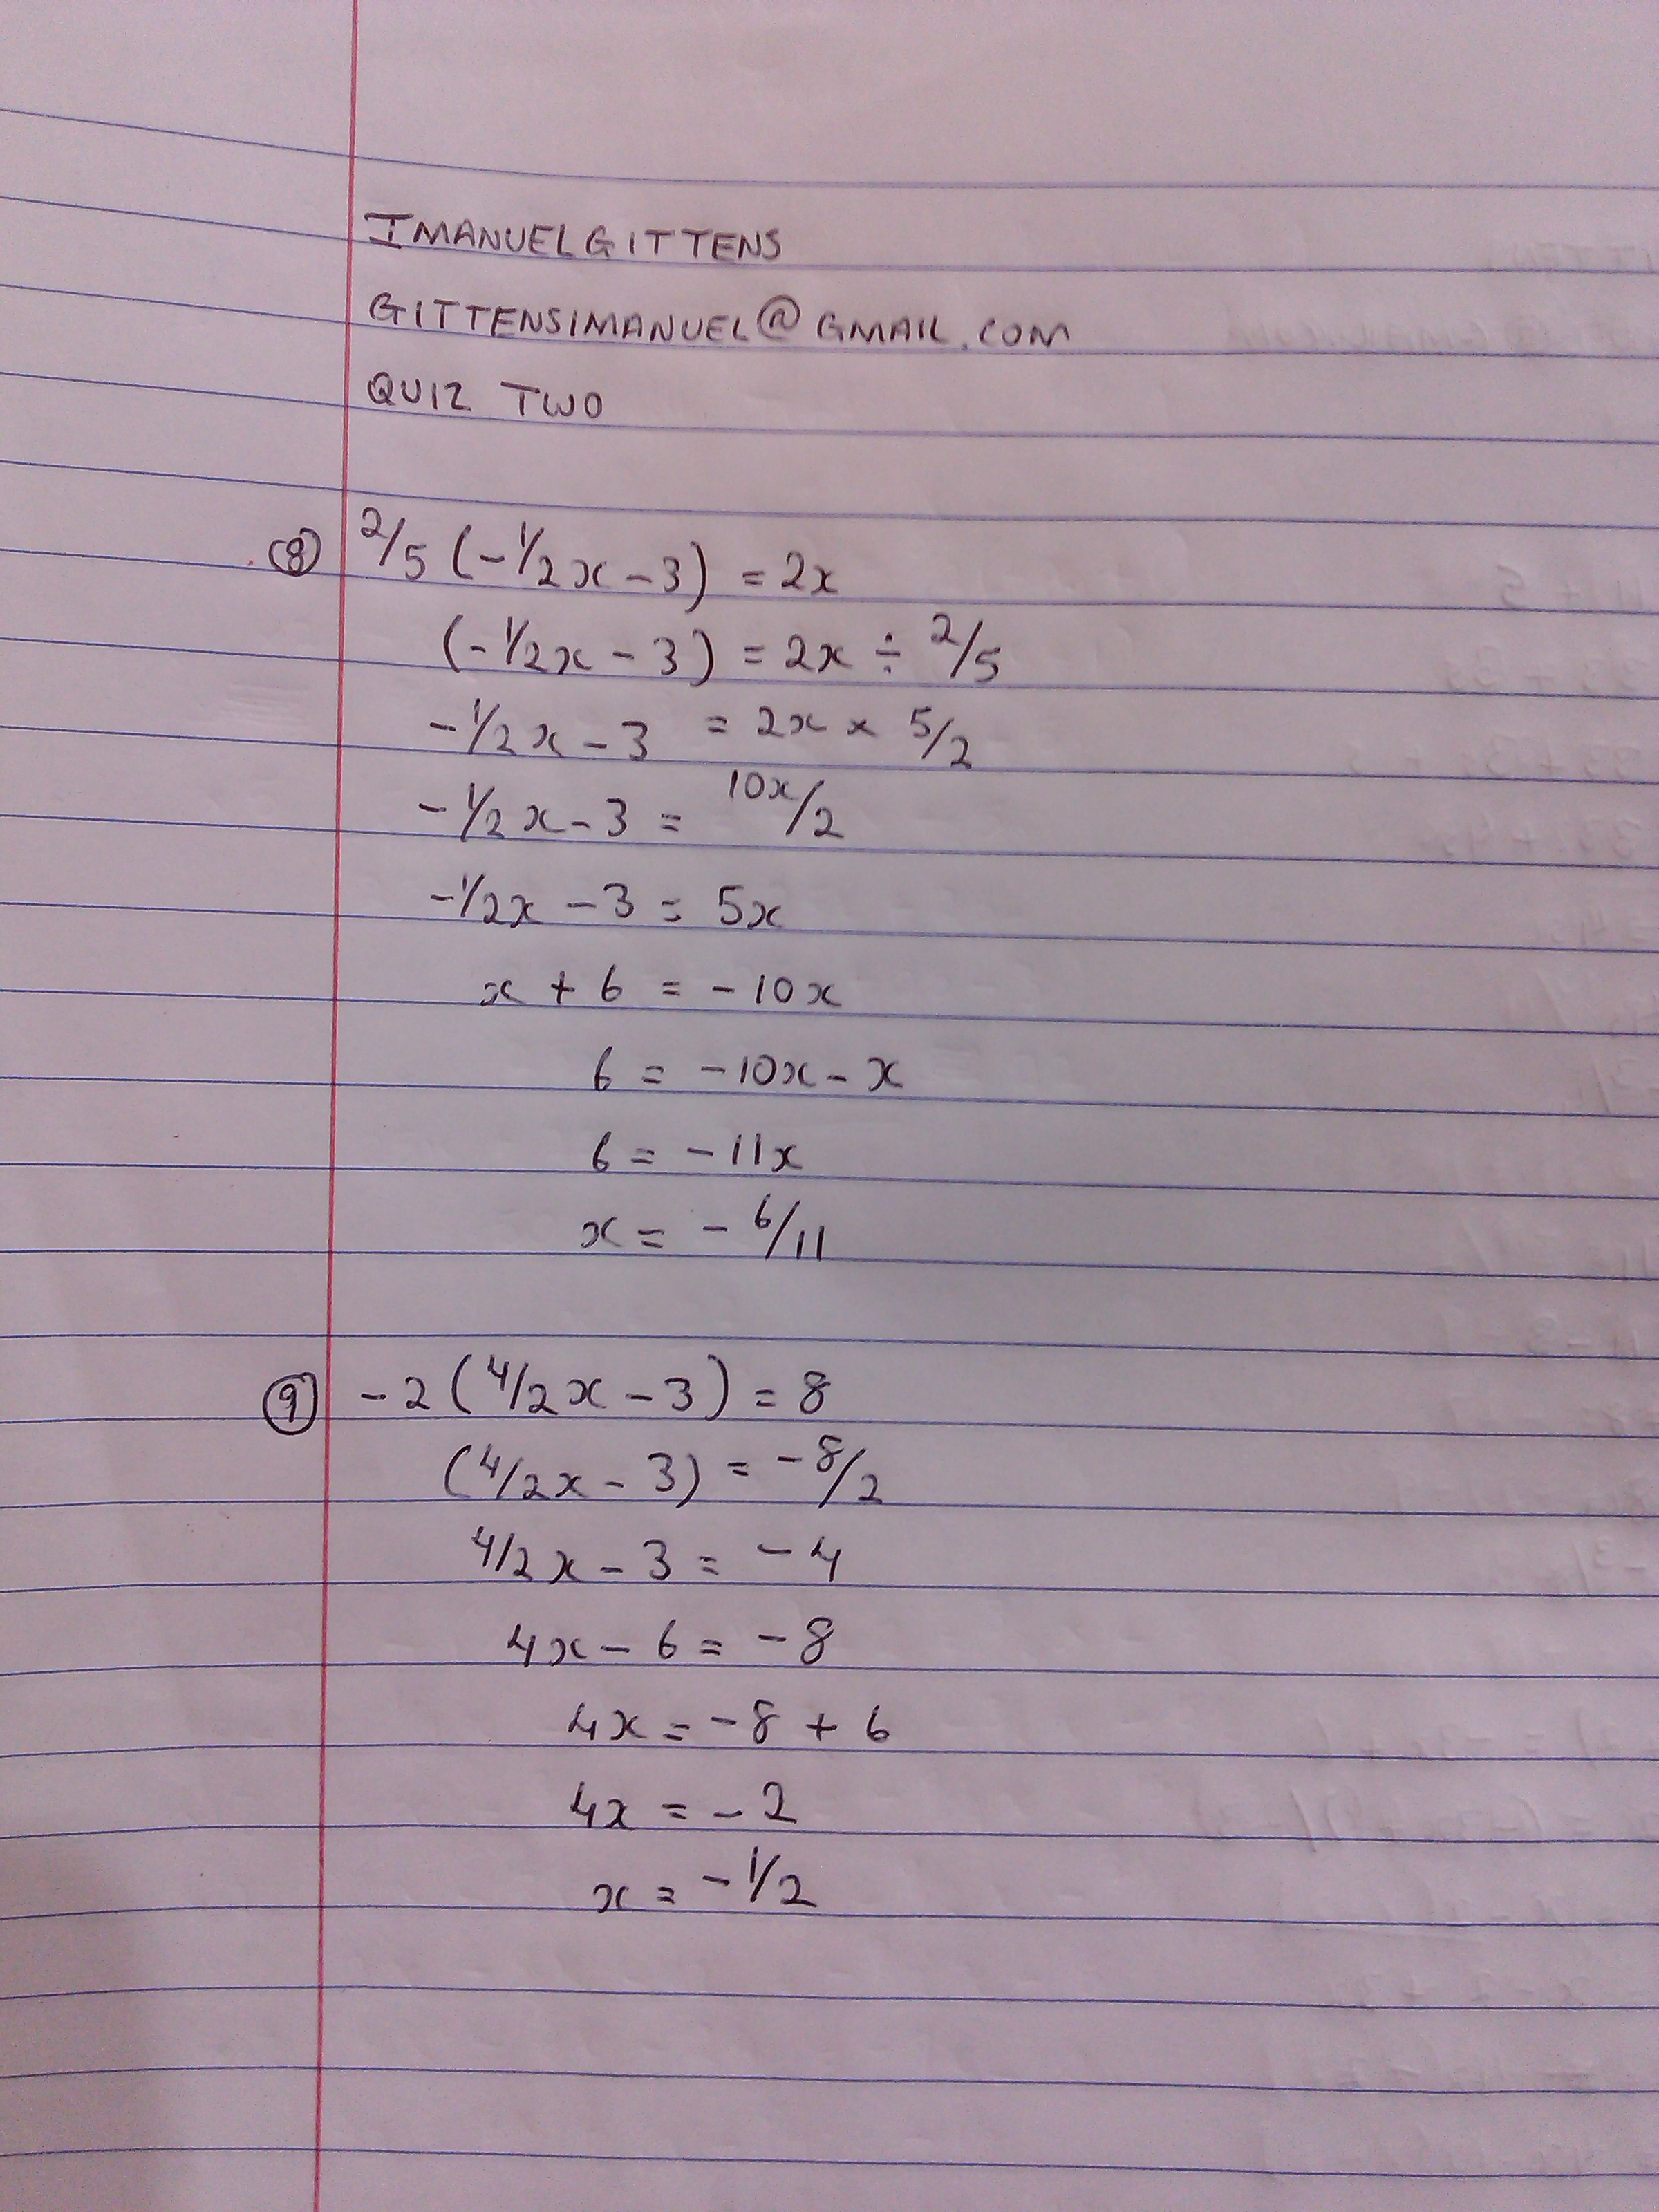 IMANUEL GITTENS
GITTENSIMANUEL@GMAIL.COM
QUIZ TWO
(8) 2/5 (-1/2x - 3) = 2x
(-1/2x - 3) = 2x ÷ 2/5
-1/2x - 3 = 2x × 5/2
-1/2x - 3 = 10x/2
-1/2x - 3 = 5x
x + 6 = -10x
6 = -10x - x
6 = -11x
x = -6/11
(9) -2 (4/2x - 3) = 8
(4/2x - 3) = -8/2
4/2x - 3 = -4
4x - 6 = -8
4x = -8 + 6
4x = -2
x = -1/2